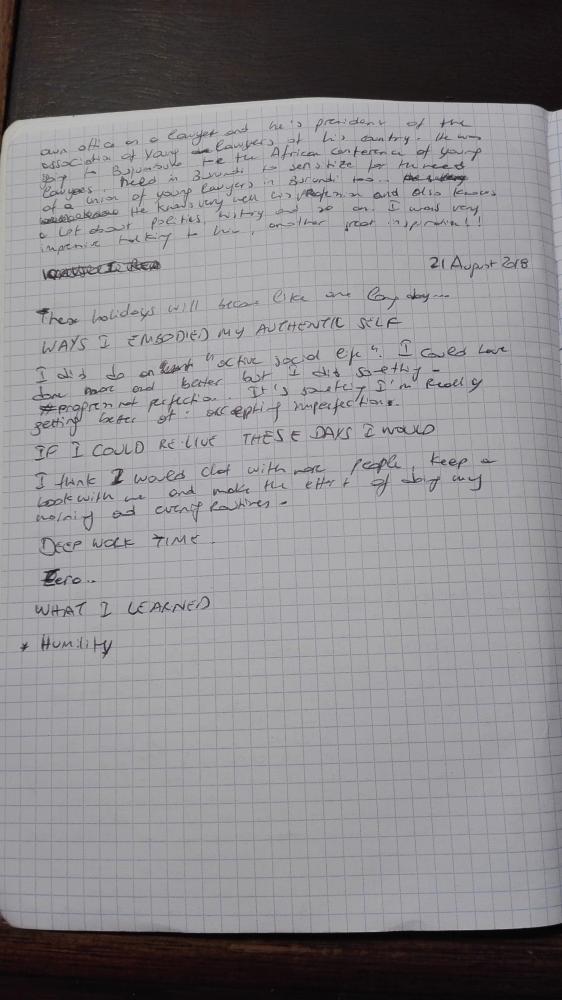 own office as a lawyer and he is president of the
association of young lawyers of his country. He was
to Bujumbura to the African Conference of young
lawyers. held in Burundi to sensitize for the need
of a union of young lawyers in Burundi too..
He knows very well his profession and also knows
a lot about politics, history and so on. I was very
talking to him, another great inspiration!!
21 August 2018
These holidays will become like one long day...
WAYS I EMBODIED MY AUTHENTIC SELF
I did do an "active social life". I could have
done more and better but I did something.
not perfection. It's something I'm really
getting better at: accepting imperfections.
IF I COULD RE-LIVE THESE DAYS I WOULD
I think I would chat with more people, keep a
book with me and make the effort of doing my
morning and evening routines.
DEEP WORK TIME.
Zero..
WHAT I LEARNED
* HUMILITY